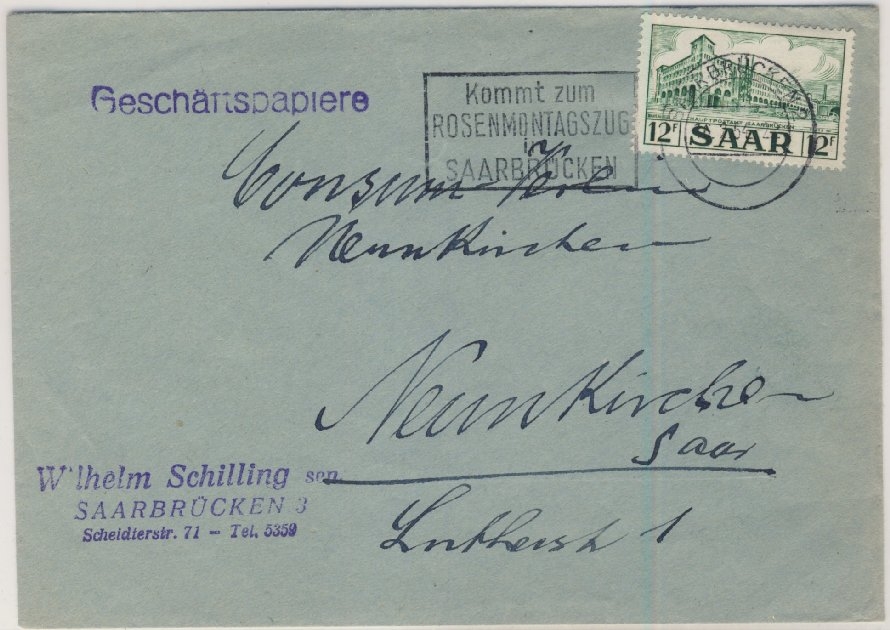 Geschäftspapiere
Kommt zum
ROSENMONTAGSZUG
in
SAARBRÜCKEN
SAARBRÜCKEN 2
HAUPTPOSTAMT SAARBRÜCKEN
12F SAAR 12F
Consum-Verein
Neunkirchen
Neunkirchen
Saar
Lutherstr 1
Wilhelm Schilling sen.
SAARBRÜCKEN 3
Scheidterstr. 71 – Tel. 5359